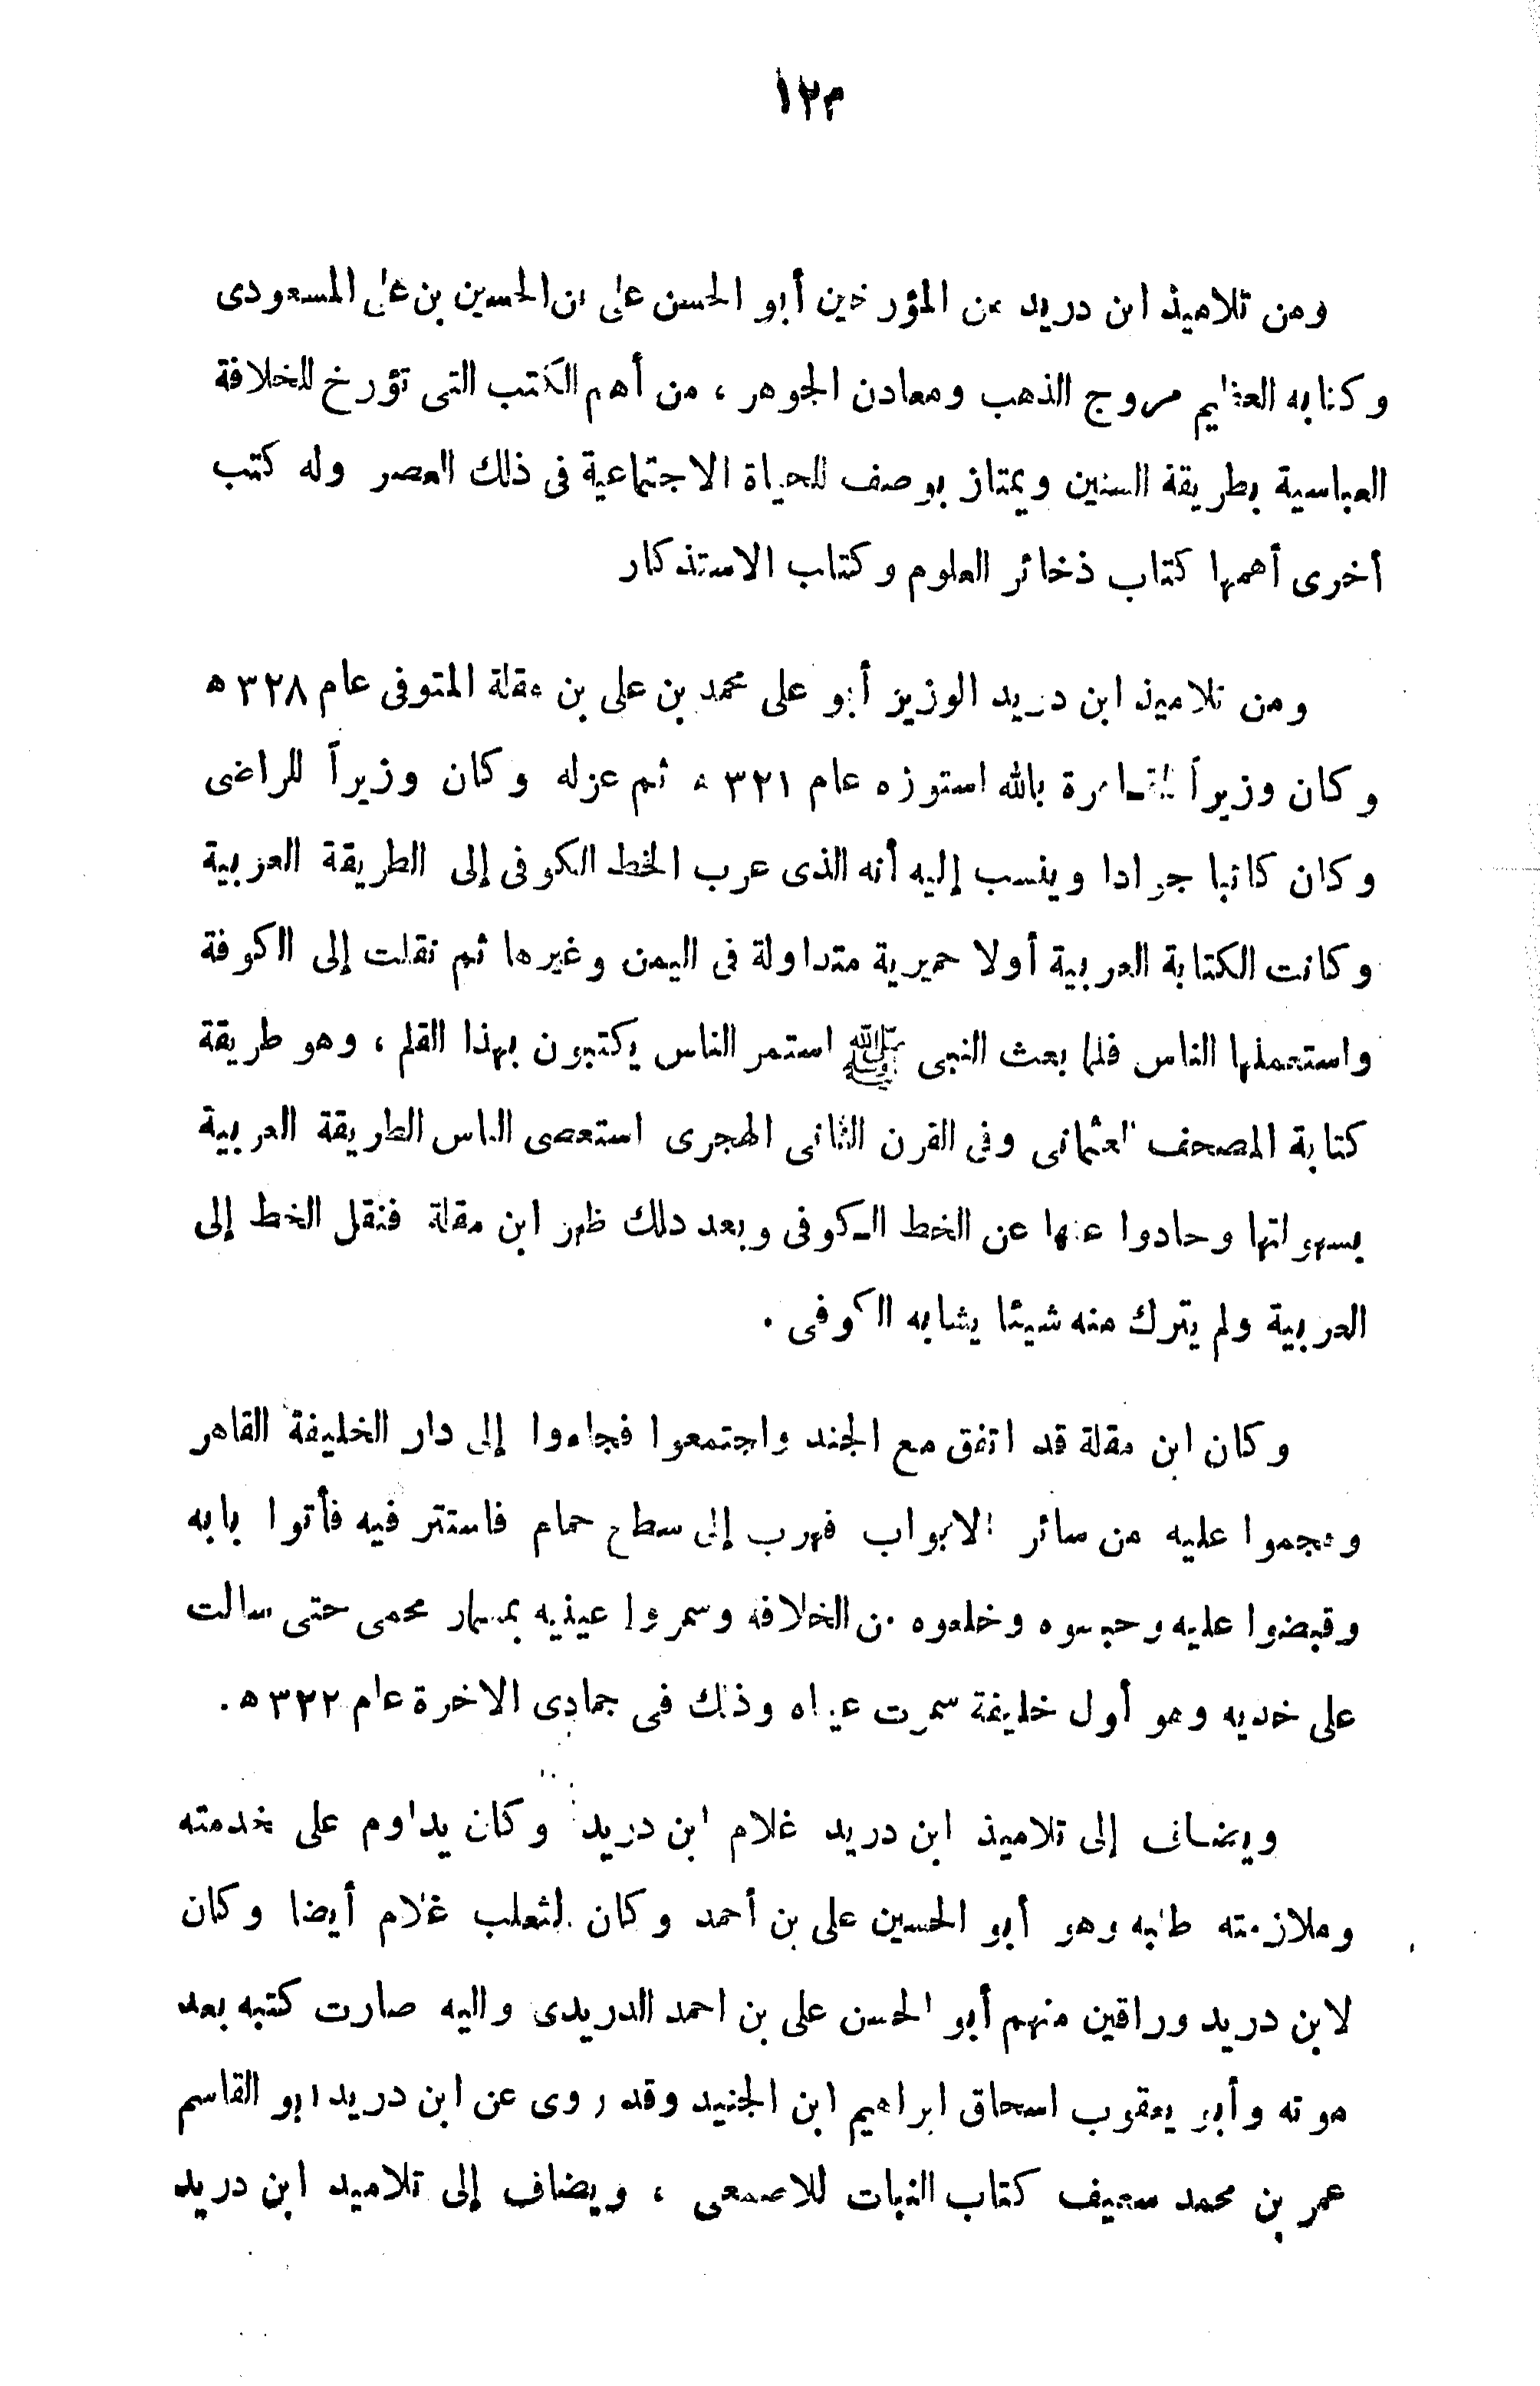 ١٢٣
ومن تلاميذ ابن دريد من المؤرخين أبو الحسن على بن الحسين بن على المسعودى
وكتابه العظيم مروج الذهب ومعادن الجوهر ، من أهم الكتب التى تؤرخ للخلافة
العباسية بطريقة السنين ويمتاز بوصف للحياة الاجتماعية فى ذلك العصر وله كتب
أخرى أهمها كتاب ذخائر العلوم وكتاب الاستذكار
ومن تلاميذ ابن دريد الوزيز أبو على محمد بن على بن مقلة المتوفى عام ٣٢٨ ه
وكان وزيراً بالله استوزه عام ٣٢١ ه ثم عزله وكان وزيراً للراضى
وكان كاتبا جوادا وينسب إليه أنه الذى عرب الخط الكوفى إلى الطريقة العربية
وكانت الكتابة العربية أولا حميرية متداولة فى اليمن وغيرها ثم نقلت إلى الكوفة
واستعملها الناس فلما بعث النبى ﷺ استمر الناس يكتبون بهذا القلم ، وهو طريقة
كتابة المصحف العثمانى وفى القرن الثانى الهجرى استعصى الناس الطريقة العربية
بسهولتها وحادوا عنها عن الخط الكوفى وبعد دلك ظهر ابن مقلة فنقل الخط إلى
العربية ولم يترك منه شيئا يشابه الكوفى .
وكان ابن مقلة قد اتفق مع الجند واجتمعوا فجاءوا إلى دار الخليفة القاهر
وهجموا عليه من سائر الابواب فهرب إلى سطح حمام فاستتر فيه فأتوا بابه
وقبضوا عليه وحبسوه وخلعوه من الخلافه وسمروا عينيه بمسمار محمى حتى سالت
على خديه وهو أول خليفة سمرت عيناه وذلك فى جمادى الاخرة عام ٣٢٢ ه .
ويضاف إلى تلاميذ ابن دريد غلام ابن دريد وكان يداوم على خدمته
وملازمته طلبه وهو أبو الحسين على بن أحمد وكان لثعلب غلام أيضا وكان
لابن دريد وراقين منهم أبو الحسن على بن احمد الدريدى واليه صارت كتبه بعد
موته وأبو يعقوب اسحاق ابراهيم ابن الجنيد وقد روى عن ابن دريد ابو القاسم
عمر بن محمد سعيف كتاب النبات للاصمعى ، ويضاف إلى تلاميد ابن دريد